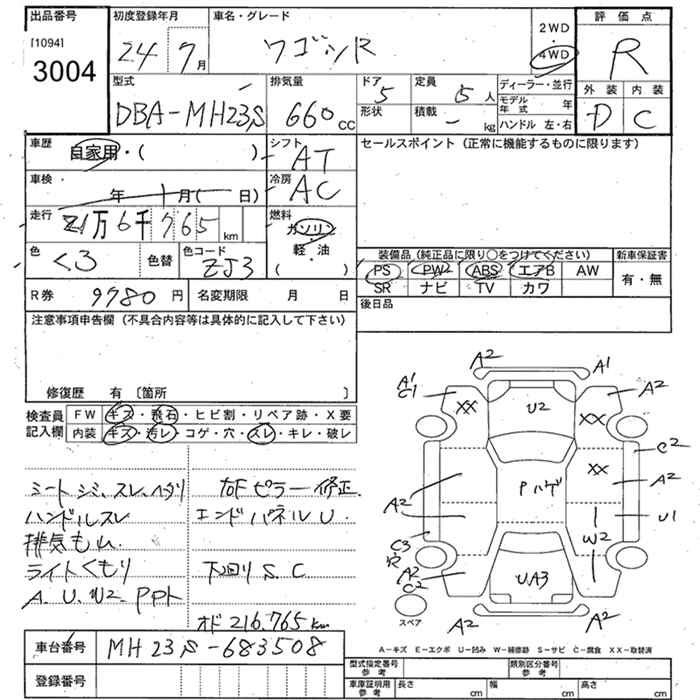 出品番号 初度登録年月 車名・グレード 2WD・4WD 評価点
[1094]
3004 24 7月 ワゴンR R
型式 排気量 ドア 定員 ディーラー・並行 外装 内装
DBA-MH23S 660cc 5 5人 モデル年式 年 D C
形状 積載 - kg ハンドル 左・右
車歴 自家用・( ) シフト AT セールスポイント(正常に機能するものに限ります)
車検 年 月( 日) 冷房 AC
走行 21万6千765km 燃料 ガソリン・軽・油 ( )
色 クロ 色替 色コード ZJ3 装備品(純正品に限り○をつけてください) 新車保証書
PS PW ABS エアB AW 有・無
SR ナビ TV カワ
R券 9780円 名変期限 月 日 後日品
注意事項申告欄(不具合内容等は具体的に記入して下さい)
修復歴 有〔箇所 〕
検査員記入欄 FW キズ・飛石・ヒビ割・リペア跡・X要
内装 キズ・汚レ・コゲ・穴・スレ・キレ・破レ
シートシミ、スレ、ヘタリ 右Fピラー修正
ハンドルスレ エンドパネルU
排気もれ
ライトくもり 下回りS.C
A.U.W2.PPt
オド216.765km
A2 A1
A1 C1 A2
XX U2 XX
C2
XX A2
A2 Pハゲ
U1
W2
C3 穴
A2 C2 UA3
A2 A2
スペア
A-キズ E-エクボ U-凹み W-補修跡 S-サビ C-腐食 XX-取替済
車台番号 MH23S-683508
型式指定番号 参考 類別区分番号 参考
登録番号
車庫証明用 参考 長さ cm 幅 cm 高さ cm